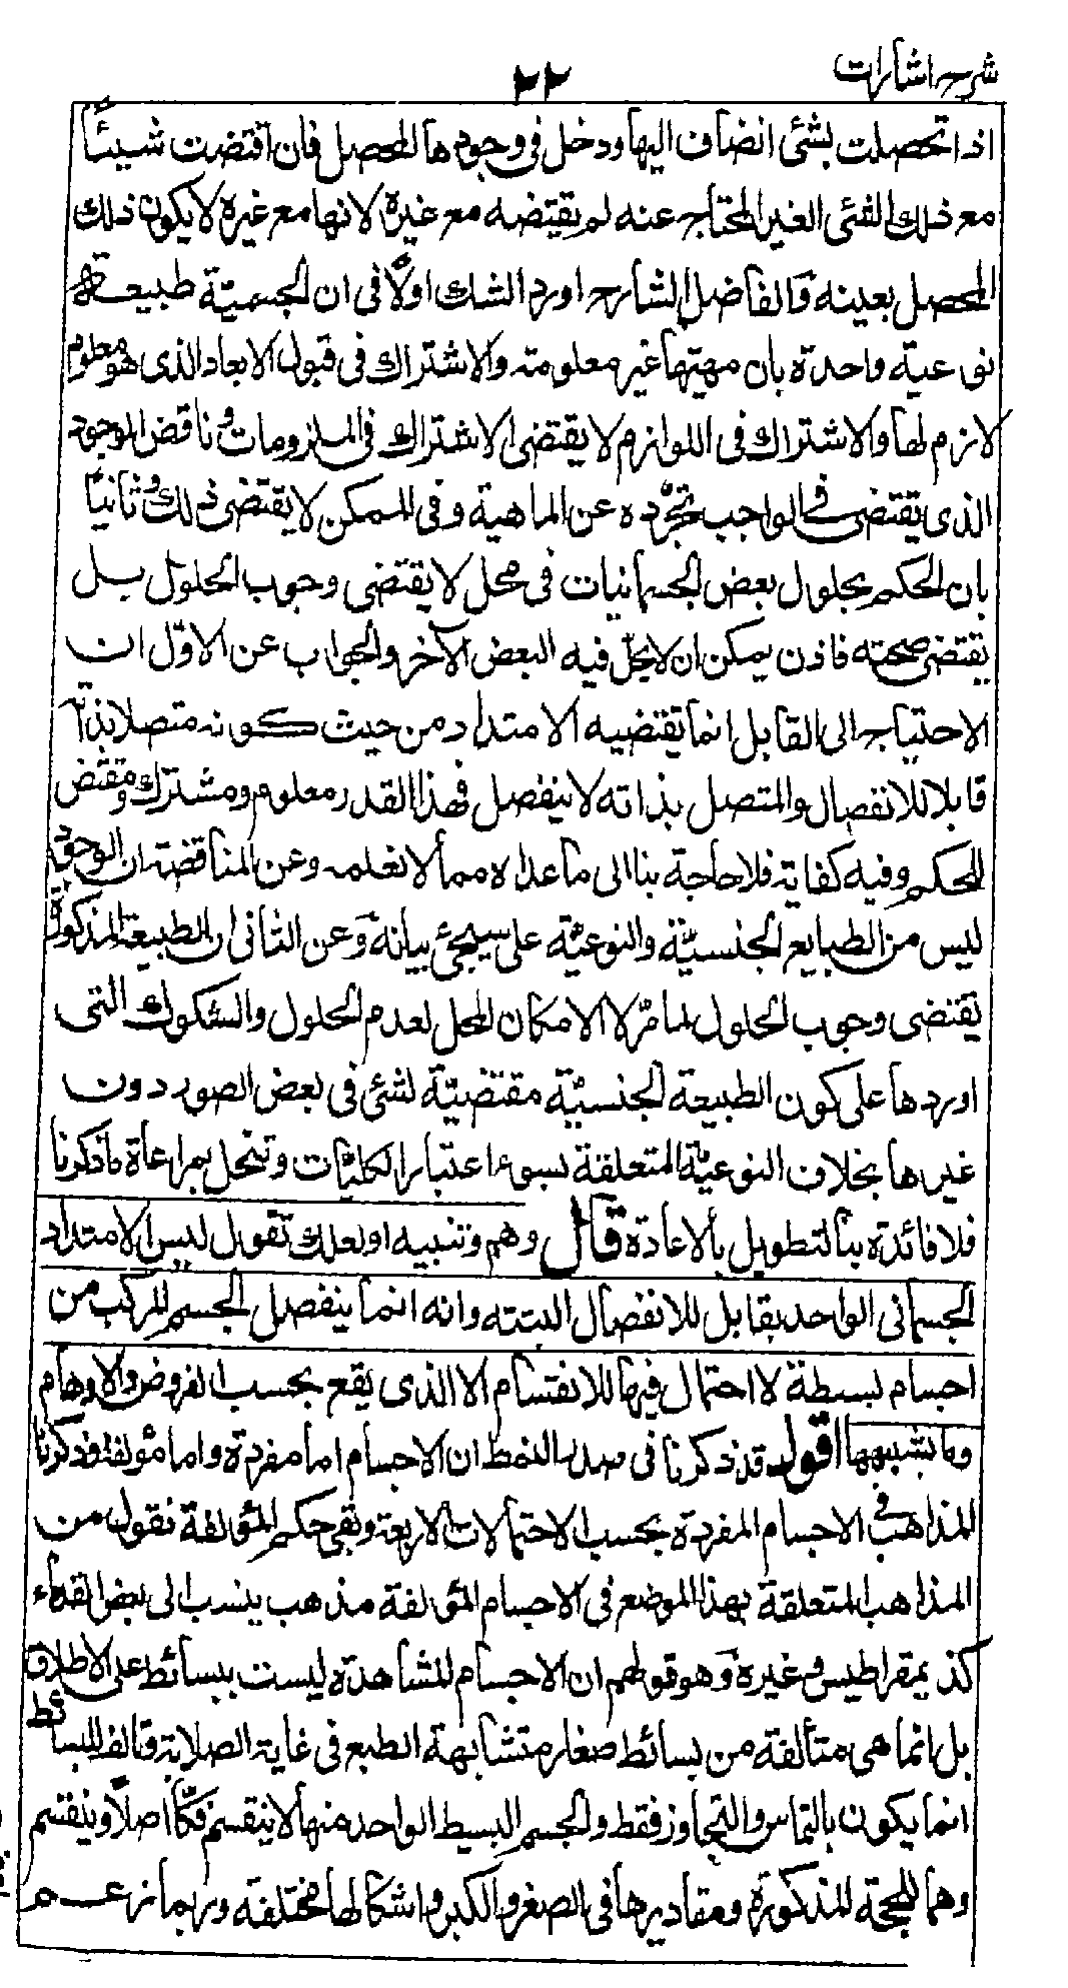 شرح اشارات
٢٢
اذا تحصلت بشئ انضاف اليها ودخل فى وجودها المحصل فان اقتضت شيئًا
مع ذلك الشئ الغير المحتاج عنه لم يقتضه مع غيره لانها مع غيره لا يكون ذلك
المحصل بعينه والفاضل الشارح اورد الشك اولًا فى ان الجسمية طبيعة
نوعية واحدة بان مهيتها غير معلومة والاشتراك فى قبول الابعاد الذى هو معلوم
لازم لها والاشتراك فى اللوازم لا يقتضى الاشتراك فى الملزومات وناقض الوجود
الذى يقتضى فى الواجب تجرّده عن الماهية وفى الممكن لا يقتضى ذلك وثانيًا
بان الحكم بحلول بعض الجسمانيات فى محل لا يقتضى وجوب الحلول بل
يقتضى صحته فاذن يمكن ان لا يحلّ فيه البعض الآخر والجواب عن الاوّل ان
الاحتياج الى القابل انما يقتضيه الامتداد من حيث كونه متصلا بذاته
قابلا للانفصال والمتصل بذاته لا ينفصل فهذا القدر معلوم ومشترك ومقتض
للحكم وفيه كفاية فلا حاجة بنا الى ما عداه مما لا نعلمه وعن المناقضة ان الوجود
ليس من الطبايع الجنسيّة والنوعيّة على سيجئ بيانه وعن الثانى ان الطبيعة المذكورة
يقتضى وجوب الحلول لما مرّ لا الامكان المحل لعدم الحلول والشكوك التى
اوردها على كون الطبيعة الجنسيّة مقتضيّة لشئ فى بعض الصور دون
غيرها بخلاف النوعيّة المتعلقة بسوء اعتبار الكليّات وتنحل بمراعاة ما ذكرنا
فلا فائدة بنا لتطويل بالاعادة قال وهم وتنبيه او لعلك تقول ليس الامتداد
الجسمانى الواحد بقابل للانفصال البتته وانه انما ينفصل الجسم المركب من
اجسام بسيطة لا احتمال فيها للانقسام الا الذى يقع بحسب الفروض والاوهام
وما يشبهها اقول قد ذكرنا فى صدر النمط ان الاجسام اما مفردة واما مؤلفة وذكرنا
المذاهب فى الاجسام المفردة بحسب الاحتمالات الاربعة وبقى حكم المؤلفة نقول من
المذاهب المتعلقة بهذا الموضع فى الاجسام المؤلفة مذهب ينسب الى بعض القدماء
كذيمقراطيس وغيره وهو قولهم ان الاجسام المشاهدة ليست ببسائط على الاطلاق
بل انما هى متألفة من بسائط صغار متشابهة الطبع فى غاية الصلابة وتالف البسائط
انما يكون بالتماس والتجاوز فقط والجسم البسيط الواحد منها لا ينقسم فكًّا اصلًا وينقسم
وهما للحجة المذكورة ومقاديرها فى الصغر والكبر واشكالها مختلفة وربما زعم